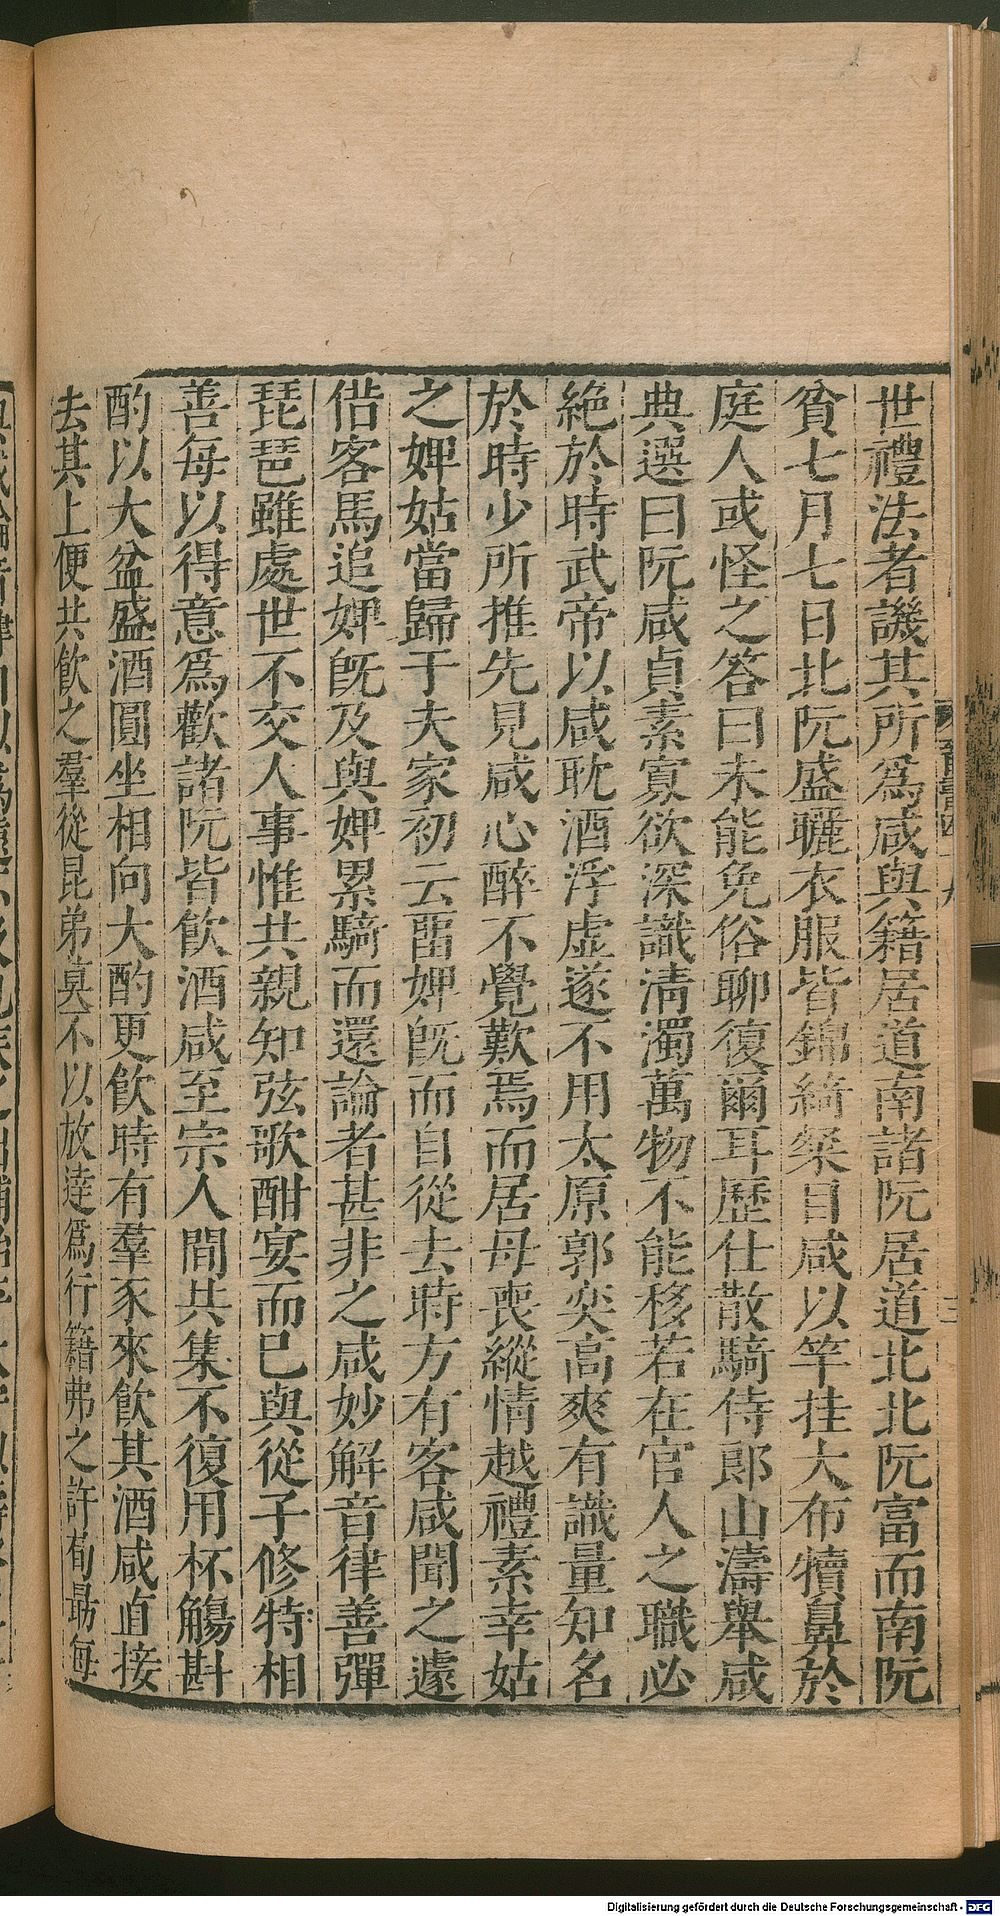 世禮法者譏其所爲咸與籍居道南諸阮居道北北阮富而南阮
貧七月七日北阮盛曬衣服皆錦綺粲目咸以竿挂大布犢鼻於
庭人或怪之答曰未能免俗聊復爾耳歷仕散騎侍郎山濤舉咸
典選曰阮咸貞素寡欲深識淸濁萬物不能移若在官人之職必
絕於時武帝以咸耽酒浮虛遂不用太原郭奕高爽有識量知名
於時少所推先見咸心醉不覺歎焉而居母喪縱情越禮素幸姑
之婢姑當歸于夫家初云留婢旣而自從去時方有客咸聞之遽
借客馬追婢旣及與婢累騎而還論者甚非之咸妙解音律善彈
琵琶雖處世不交人事惟共親知弦歌酣宴而已與從子修特相
善每以得意爲歡諸阮皆飮酒咸至宗人間共集不復用杯觴斟
酌以大盆盛酒圓坐相向大酌更飮時有羣豕來飮其酒咸直接
去其上便共飮之羣從昆弟莫不以放達爲行籍弗之許荀勗每
Digitalisierung gefördert durch die Deutsche Forschungsgemeinschaft - DFG